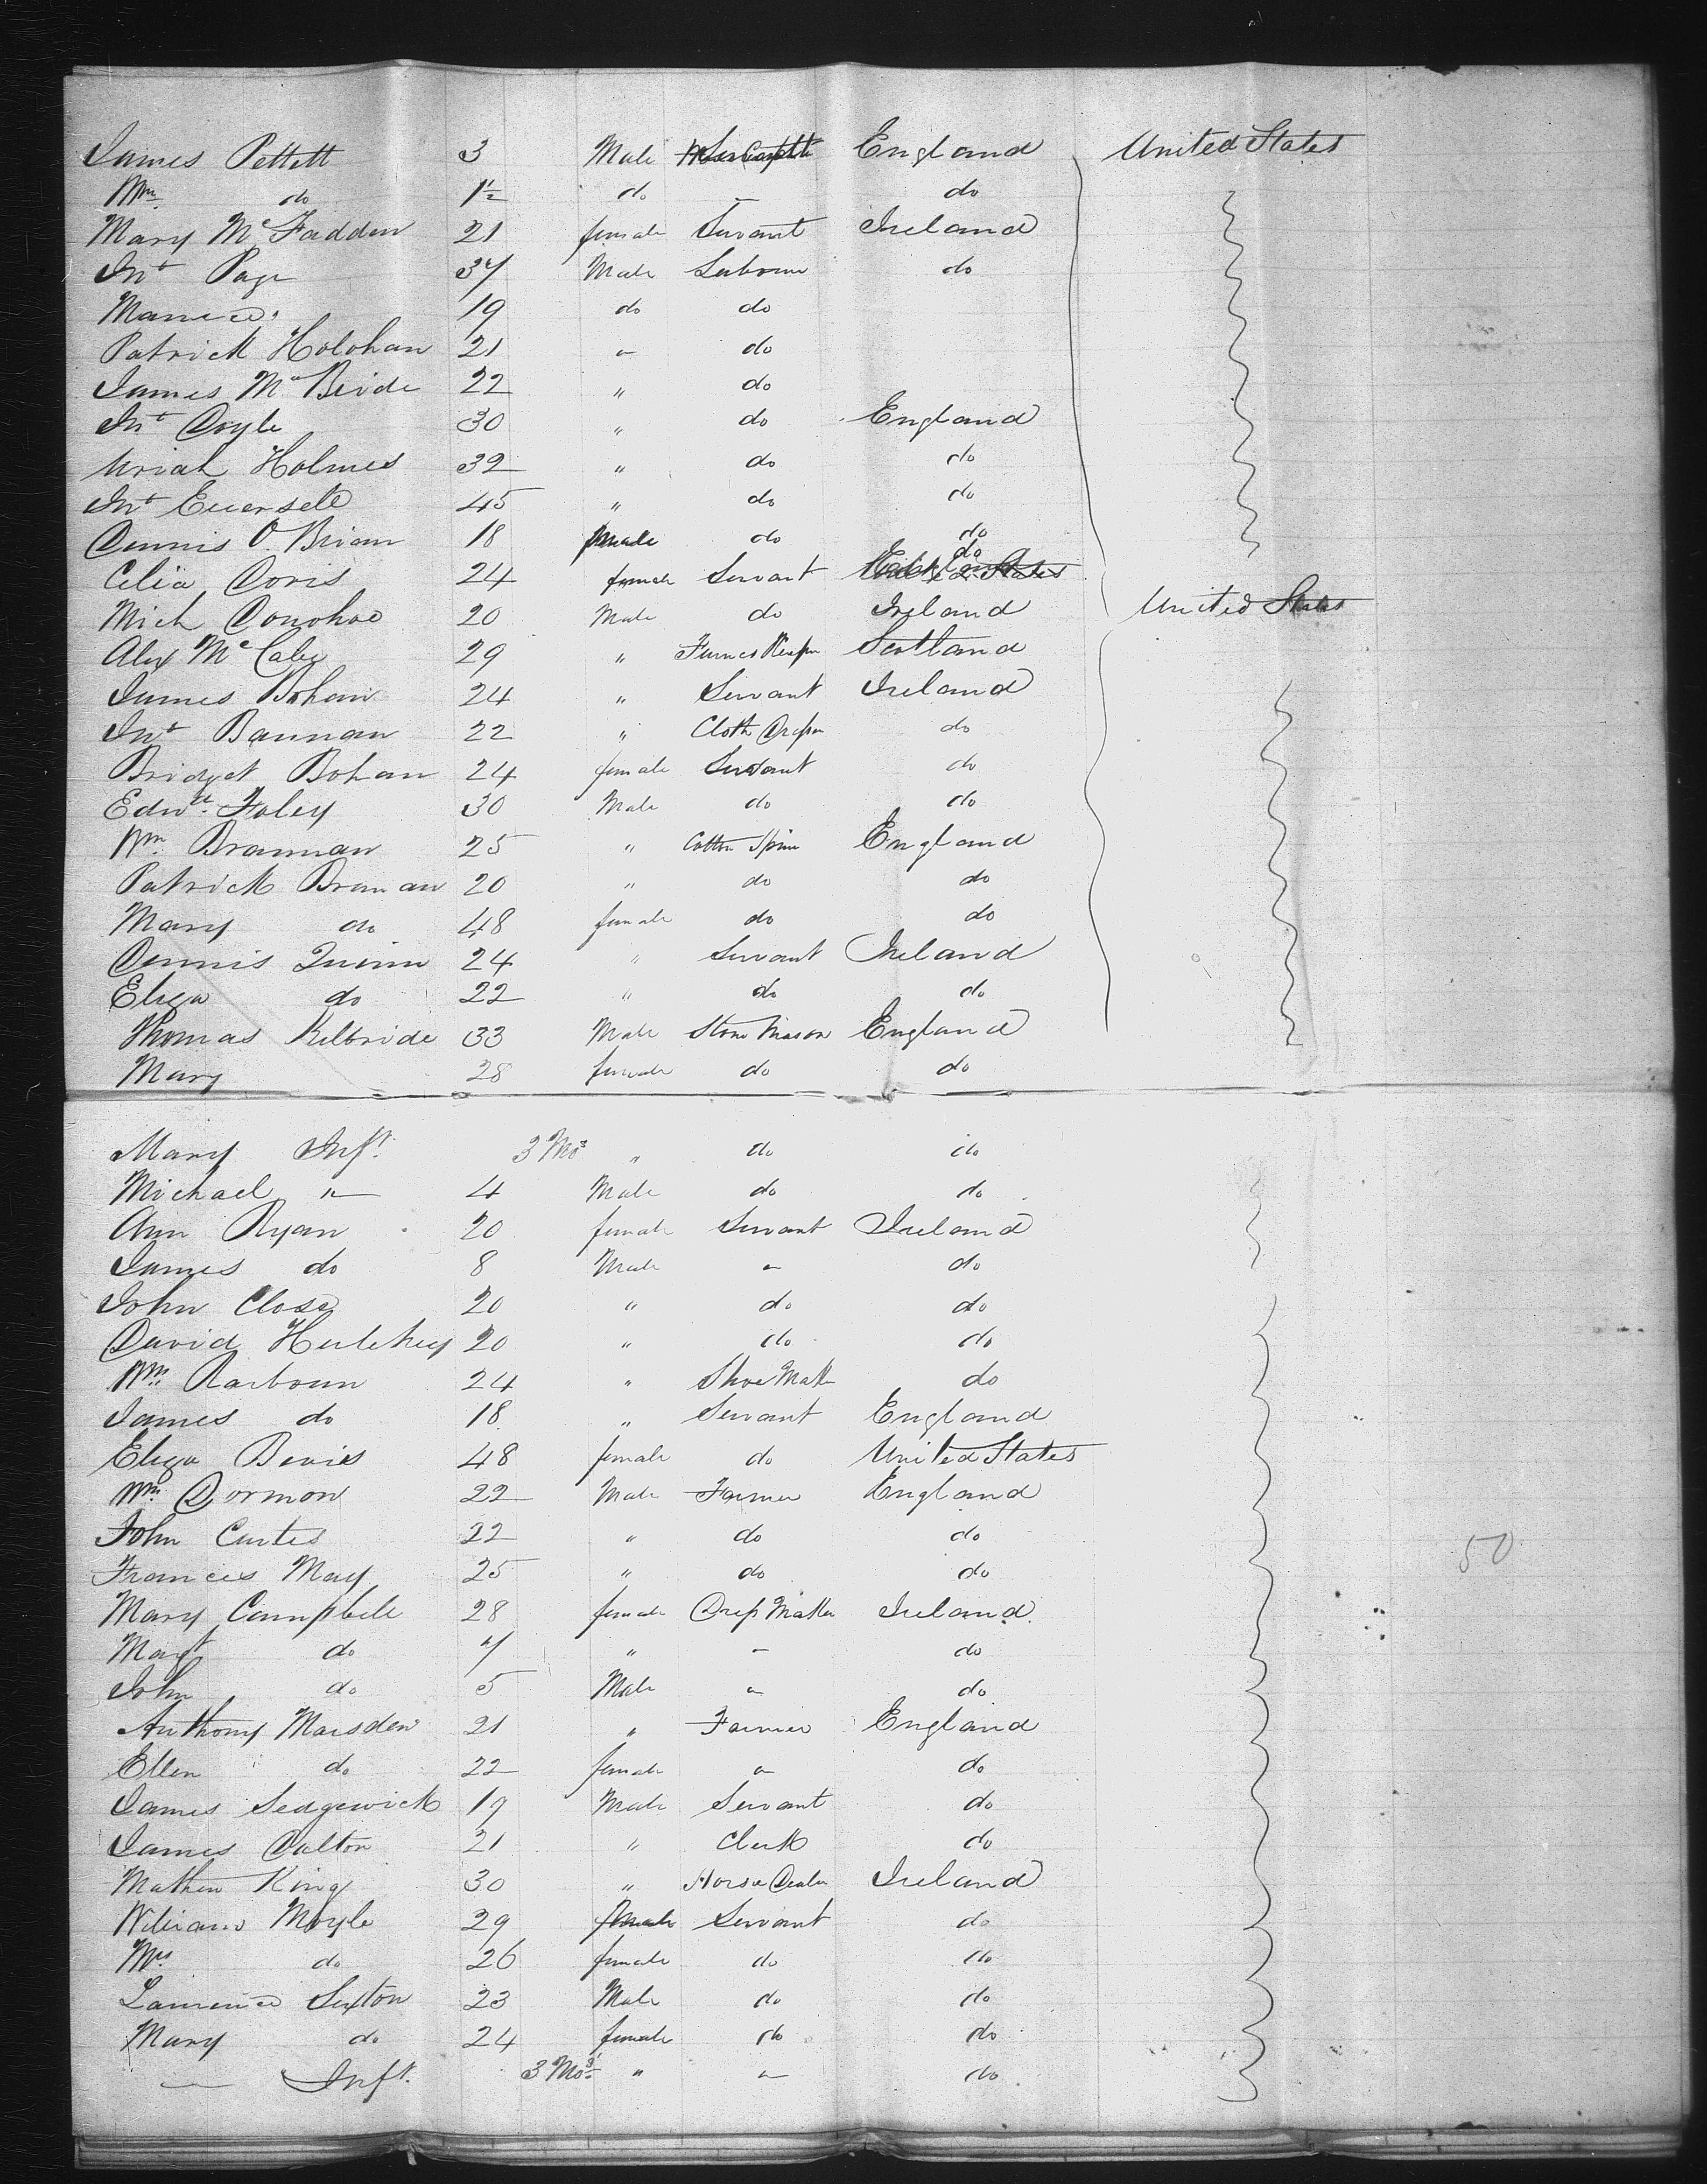 James Pettett 3 Male England United States
Wm do 1½ do – do
Mary McFadden 21 female Servant Ireland
Jno Page 37 Male Labourer do
19 do do
Patrick Holohan 21 " do
James McBride 22 " do
Jno Doyle 30 " do England
Uriah Holmes 32 " do do
Jno 45 " do do
Dennis O.Brian 18 male do do
Celia Doris 24 female Servant do
Mich Donohoe 20 Male do Ireland United States
Alex McCabe 29 " Scotland
James Bohan 24 " Servant Ireland
Jno Bannan 22 " Cloth do
Bridget Bohan 24 female Servant do
Edwd Foley 30 Male do do
Wm Brannan 25 " Cotton Spinr England
Patrick Branan 20 " do do
Mary do 48 female do do
Dennis Quinn 24 " Servant Ireland
Eliza do 22 " do do
Thomas Kilbride 33 Male Stone Mason England
Mary 28 female do do
Mary Inft 3 Mos " do do
Michael " 4 Male do do
Ann Ryan 20 female Servant Ireland
James do 8 Male " do
John Close 20 " do do
David 20 " do do
Wm 24 " Shoe Maker do
James do 18 " Servant England
Eliza Bevis 48 female do United States
Wm Dormon 22 Male Farmer England
John Curtis 22 " do do
Francis May 25 " do do 50
Mary Campbell 28 female Dress Maker Ireland
Magt do 7 " – do
John do 5 Male " do
Anthony Marsden 21 " Farmer England
Ellen do 22 female " do
James Sedgewick 19 Male Servant do
James Dalton 21 " Clerk do
Mathew King 30 " Horse Dealer Ireland
William Moyle 29 Servant do
Mrs do 26 female do do
Laurence Sexton 23 Male do do
Mary do 24 female do do
— Inft. 3 Mos " " do